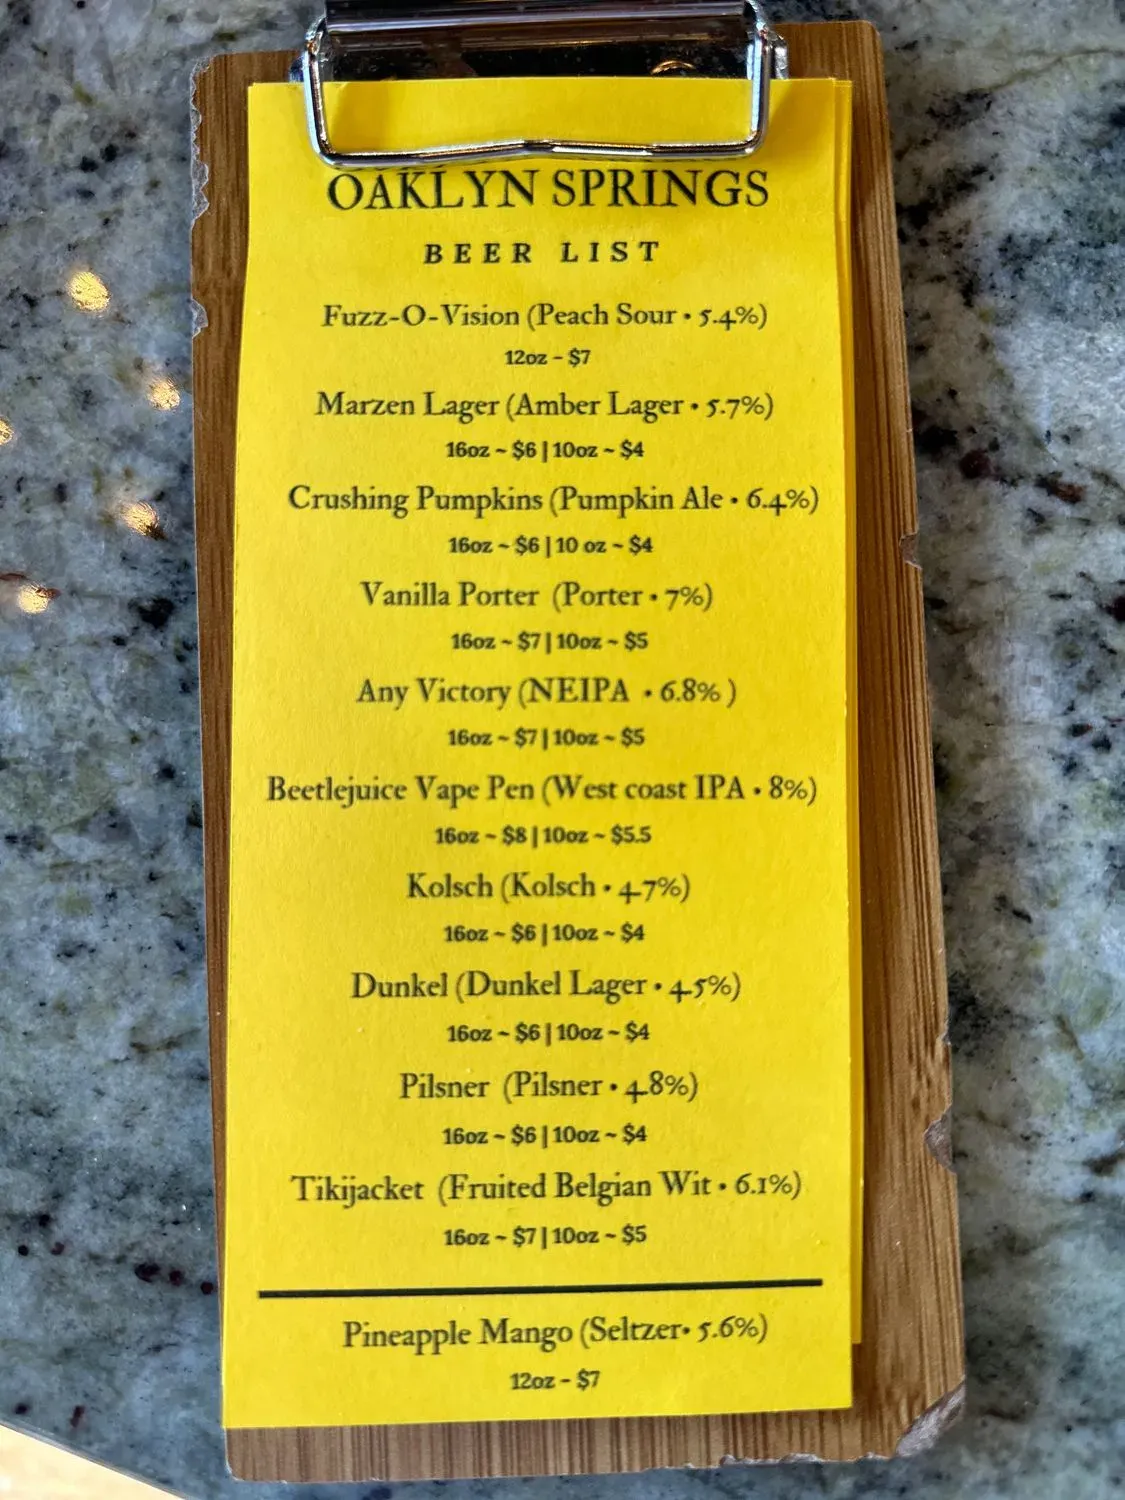 OAKLYN SPRINGS
BEER LIST
Fuzz-O-Vision (Peach Sour • 5.4%)
12oz - $7
Marzen Lager (Amber Lager • 5.7%)
16oz ~ $6 | 10oz ~ $4
Crushing Pumpkins (Pumpkin Ale • 6.4%)
16oz ~ $6 | 10 oz ~ $4
Vanilla Porter (Porter • 7%)
16oz ~ $7 | 10oz ~ $5
Any Victory (NEIPA • 6.8% )
16oz ~ $7 | 10oz ~ $5
Beetlejuice Vape Pen (West coast IPA • 8%)
16oz ~ $8 | 10oz ~ $5.5
Kolsch (Kolsch • 4.7%)
16oz ~ $6 | 10oz ~ $4
Dunkel (Dunkel Lager • 4.5%)
16oz ~ $6 | 10oz ~ $4
Pilsner (Pilsner • 4.8%)
16oz ~ $6 | 10oz ~ $4
Tikijacket (Fruited Belgian Wit • 6.1%)
16oz ~ $7 | 10oz ~ $5
Pineapple Mango (Seltzer• 5.6%)
12oz - $7